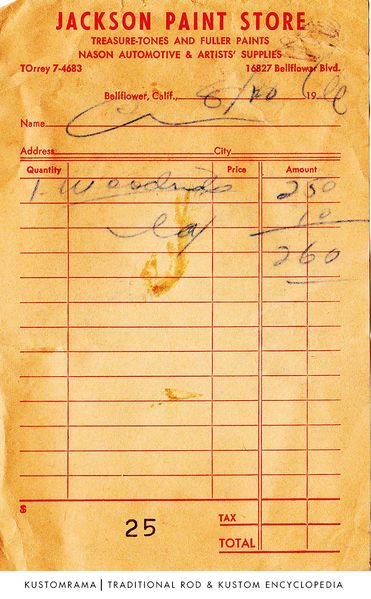 JACKSON PAINT STORE
TREASURE-TONES AND FULLER PAINTS
NASON AUTOMOTIVE & ARTISTS' SUPPLIES
TOrrey 7-4683 16827 Bellflower Blvd.
Bellflower, Calif., 8/20 19
Name
Address City
Quantity Price Amount
1 250
10
260
$
25
TAX
TOTAL
KUSTOMRAMA | TRADITIONAL ROD & KUSTOM ENCYCLOPEDIA